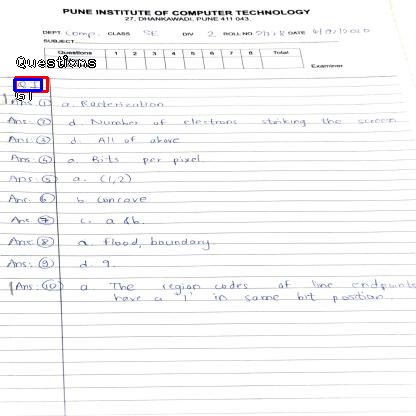 PUNE INSTITUTE OF COMPUTER TECHNOLOGY
27, DHANKAWADI, PUNE 411 043.
DEPT. Comp. CLASS SE DIV 2 ROLL NO.
SUBJECT
Questions 1 2 3 4 5 6 7 8 Total
Examiner
Questions
Q.1
Ans ① a. Rasterization
Ans: ② d. Number of electrons striking the screen
Ans: ③ d. All of above
Ans: ④ a. Bits per pixel.
Ans: ⑤ a. (1,2)
Ans: ⑥ b. concave
Ans ⑦ c. a & b.
Ans: ⑧ a. flood, boundary.
Ans: ⑨ d. 9.
Ans: ⑩ a The region codes of line endpoints
have a '1' in same bit position.